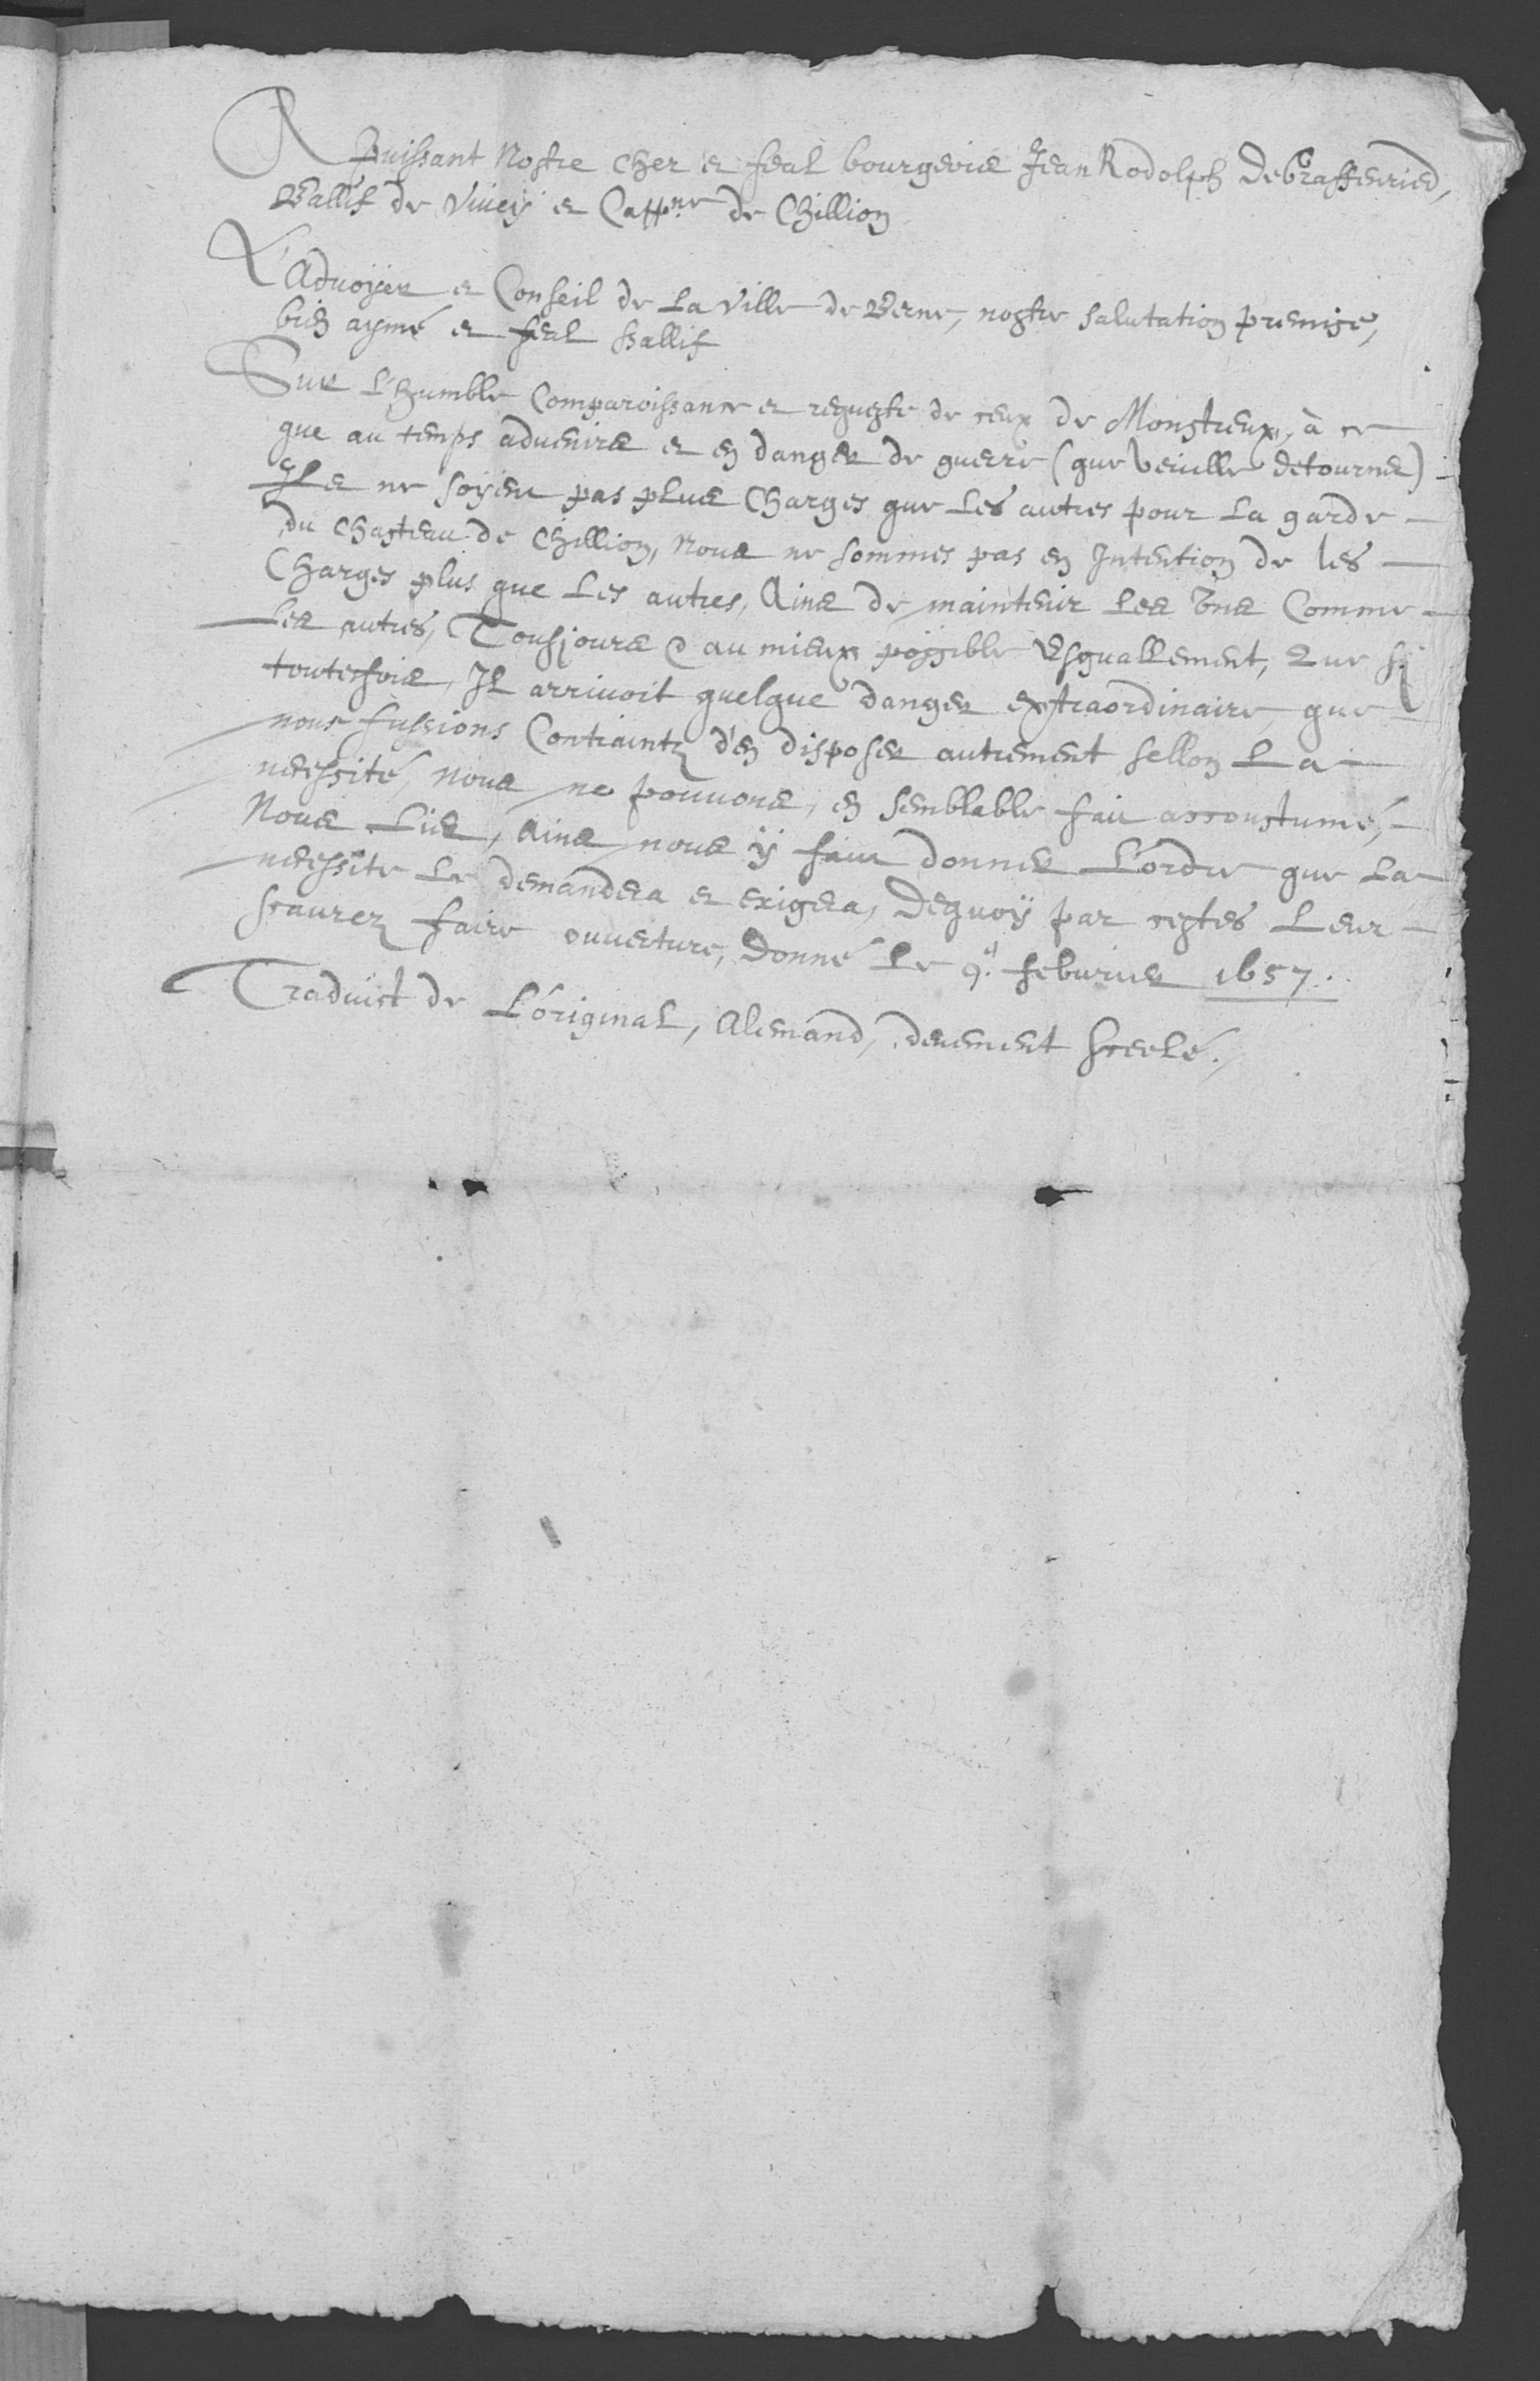 A puissant Nostre cher et feal bourgeois Jean Rodolph de Graffenried,
Ballif de Vivey et Cappne de Chillion
L'Advoyer et Conseil de La Ville de Berne, nostre salutation premise,
bien aymé et feal ballif
Sur L'humble Comparoissance et requeste de ceux de Monstreux, à ce
que au temps advenire et en danger de guerre (que veuille detourner) -
Ils ne soyent pas plus Charges que Les autres pour La garde -
du Chasteau de Chillion, Nous ne sommes pas en Intention de les -
Charges plus que Les autres, Ains de maintenir Les uns Comme -
Les autres, Tousjours & au mieux possible Esguallement, Que si
toutesfois, Il arrivoit quelque danger extraordinaire, que
nous fussions Contraintz d'en disposer autrement sellon La -
necessité, nous ne pouvons, en semblable fait accoustumé, -
Nous Lier, Ains nous ÿ faut donner L'ordre que La
necessite Le demandera et exigera, Dequoÿ par cestes Leur -
scaurez faire ouverture, Donné Le 9.e febvrier 1657.
Traduict de L'original, Alemand, devement sceelé.